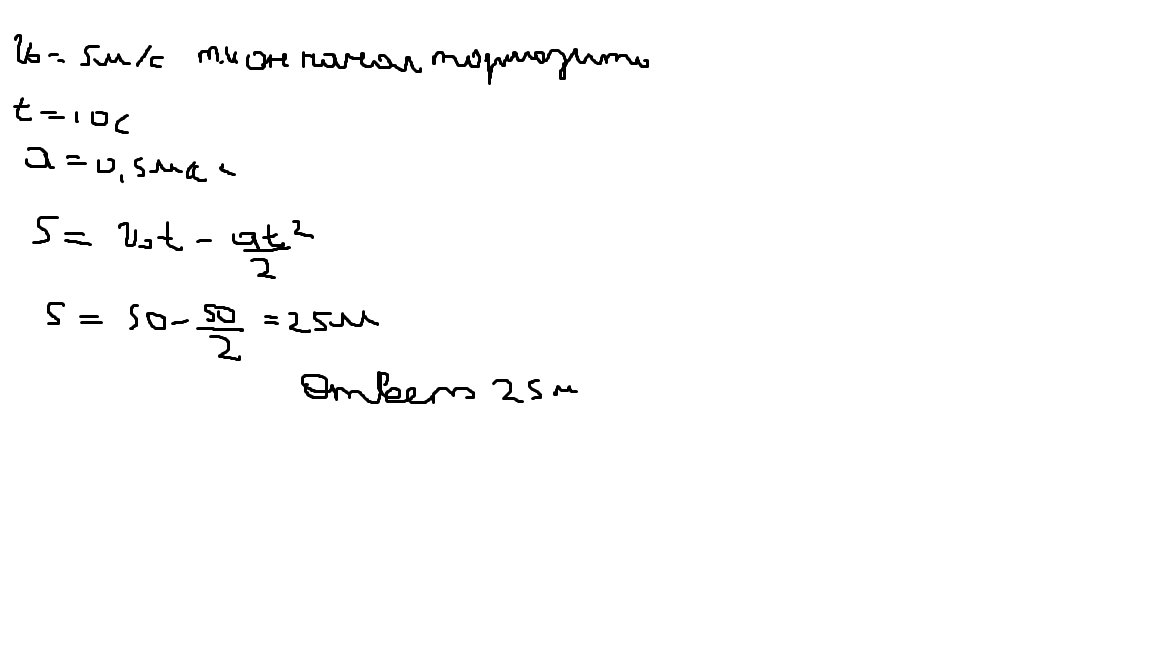 V₀ = 5м/с т.к он начал тормозить
t = 10с
a = 0,5м/с
S = V₀t - at²/2
S = 50 - 50/2 = 25м
Ответ 25м